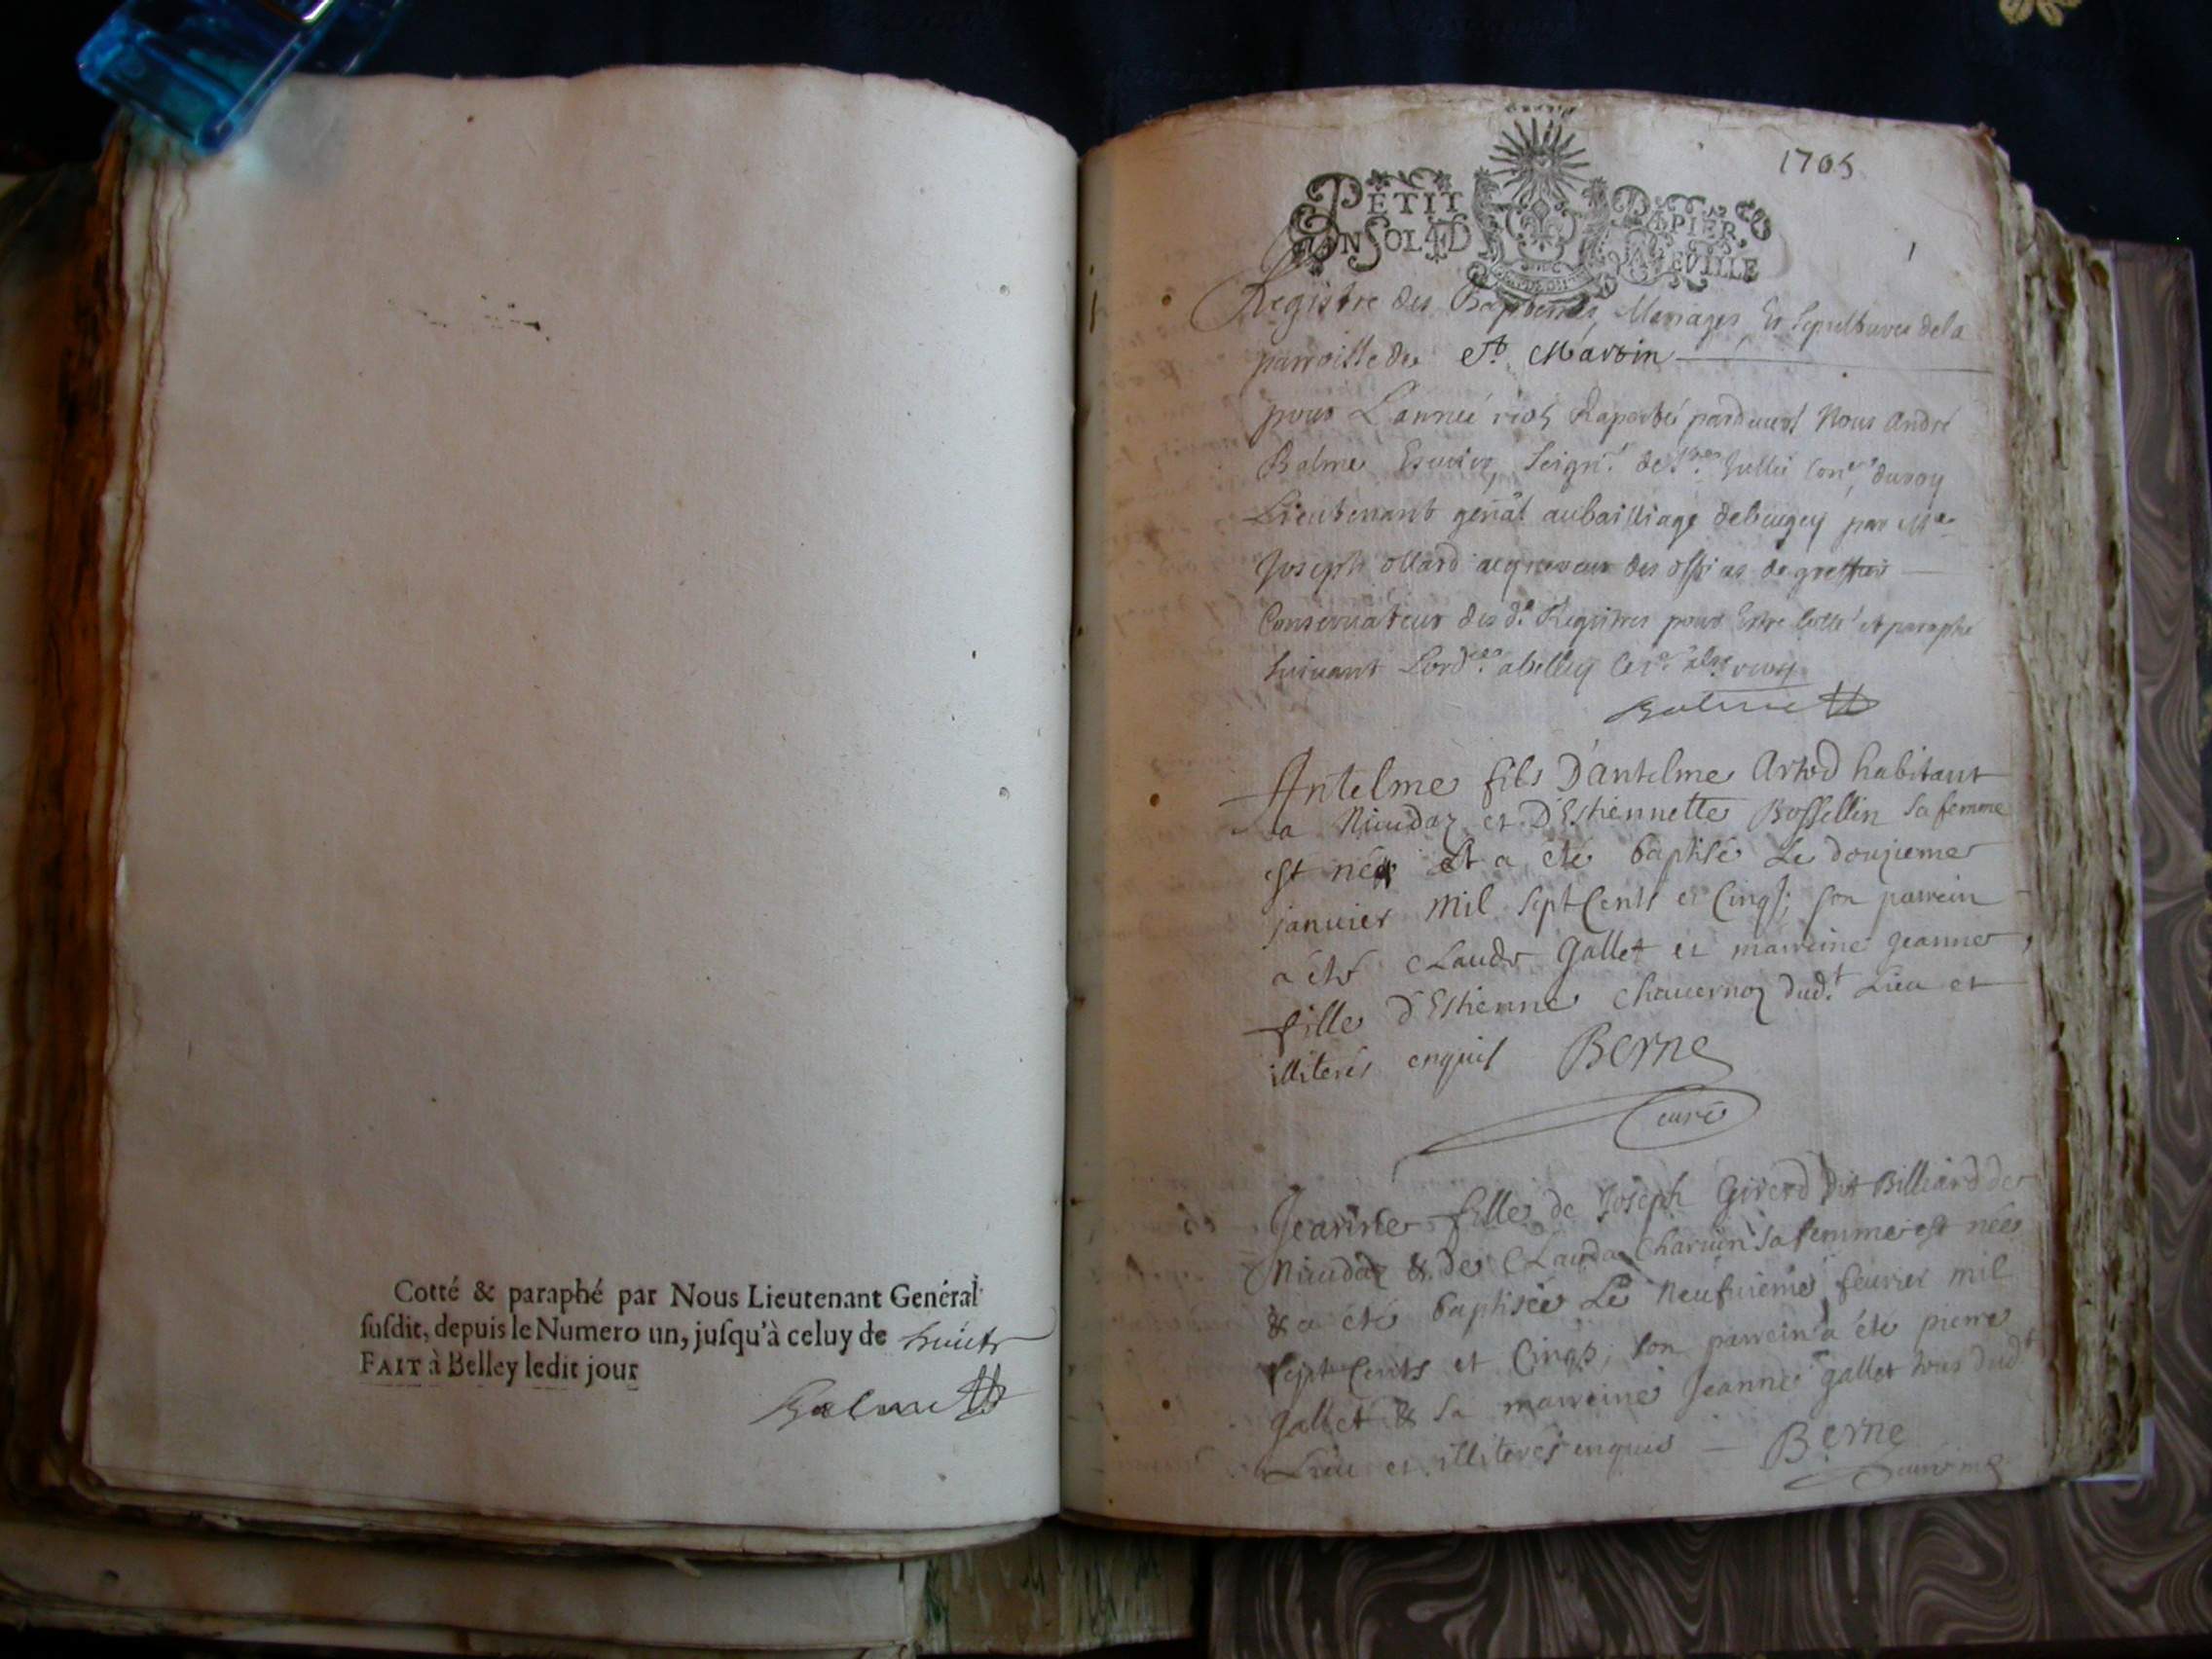 Cotté & paraphé par Nous Lieutenant General
susdit, depuis le Numero un, jusqu'à celuy de huict
FAIT à Belley ledit jour
Balme
1705
PETIT PAPIER,
UN SOL 4 D LA FEUILLE
1
Registre des Baptesmes, Mariages, Et sepultures de la
parroisse de St. Martin
pour L'année 1705 Raporté pardevant Nous André
Balme Escuier, Seigr. de du roy
Lieutenant genal au bailliage de bugey par Me
Joseph ollard acquereur des offices de greffier
Conservateur des ds. Registres pour Estre cotté et paraphé
suivant Lord. a belley
Balme
Antelme fils D'antelme Artod habitant
a Niuudaz et D'Estiennette Bossellin sa femme
est né et a eté baptisé Le douzieme
janvier mil sept Cents et Cinqs; son parrein
a été Claude Gallet et marreine jeanne,
fille d'Estienne Chauernoz dud.t Lieu et
illiterés enquis Berne
curé
Jeanne fille de Joseph Girerd dit Billiard de
Niuudaz & de Clauda Charuin sa femme est née
& a été baptisée Le Neufuieme feurier mil
sept Cents et Cinqs; son parrein a été pierre
gallet & sa marreine Jeanne gallet tous dud.t
Lieu et illiterés enquis — Berne
curé